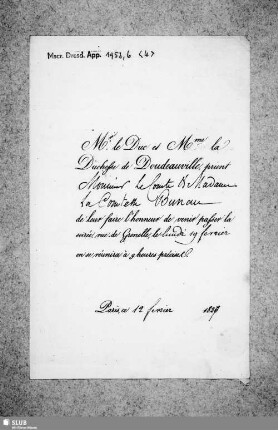 Mscr. Dresd. App. 1952, 6 <4>
Mr. le Duc et Mme. la
Duchesse de Doudeauville, prient
Monsieur Le Comte & Madame
La Comtesse Bunau
de leur faire l'honneur de venir passer la
soirée, rue de Grenelle, le lundi 19 fevrier
on se réunira à 9 heures précises.
Paris, ce 12 fevrier 1827
SLUB